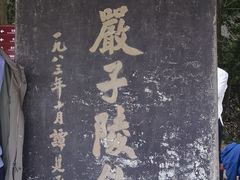 嚴子陵
一九八三年十月譚